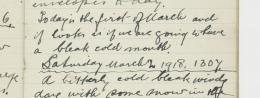 envelopes to day.
Today is the first of March and
it looks as if we are going to have
a bleak cold month.
Saturday March 2 1918.
A bitterly cold bleak windy
day with some snow in the
6.